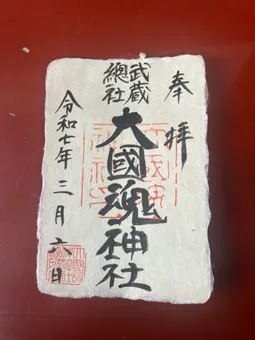 奉拝
武蔵
總社
大國魂神社
令和七年三月六日